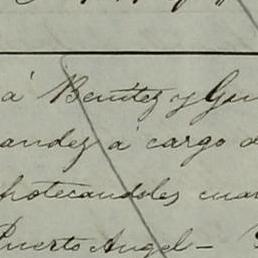 á Benítez y Gu
andez á cargo d
potecandoles cua
Puerto Angel -